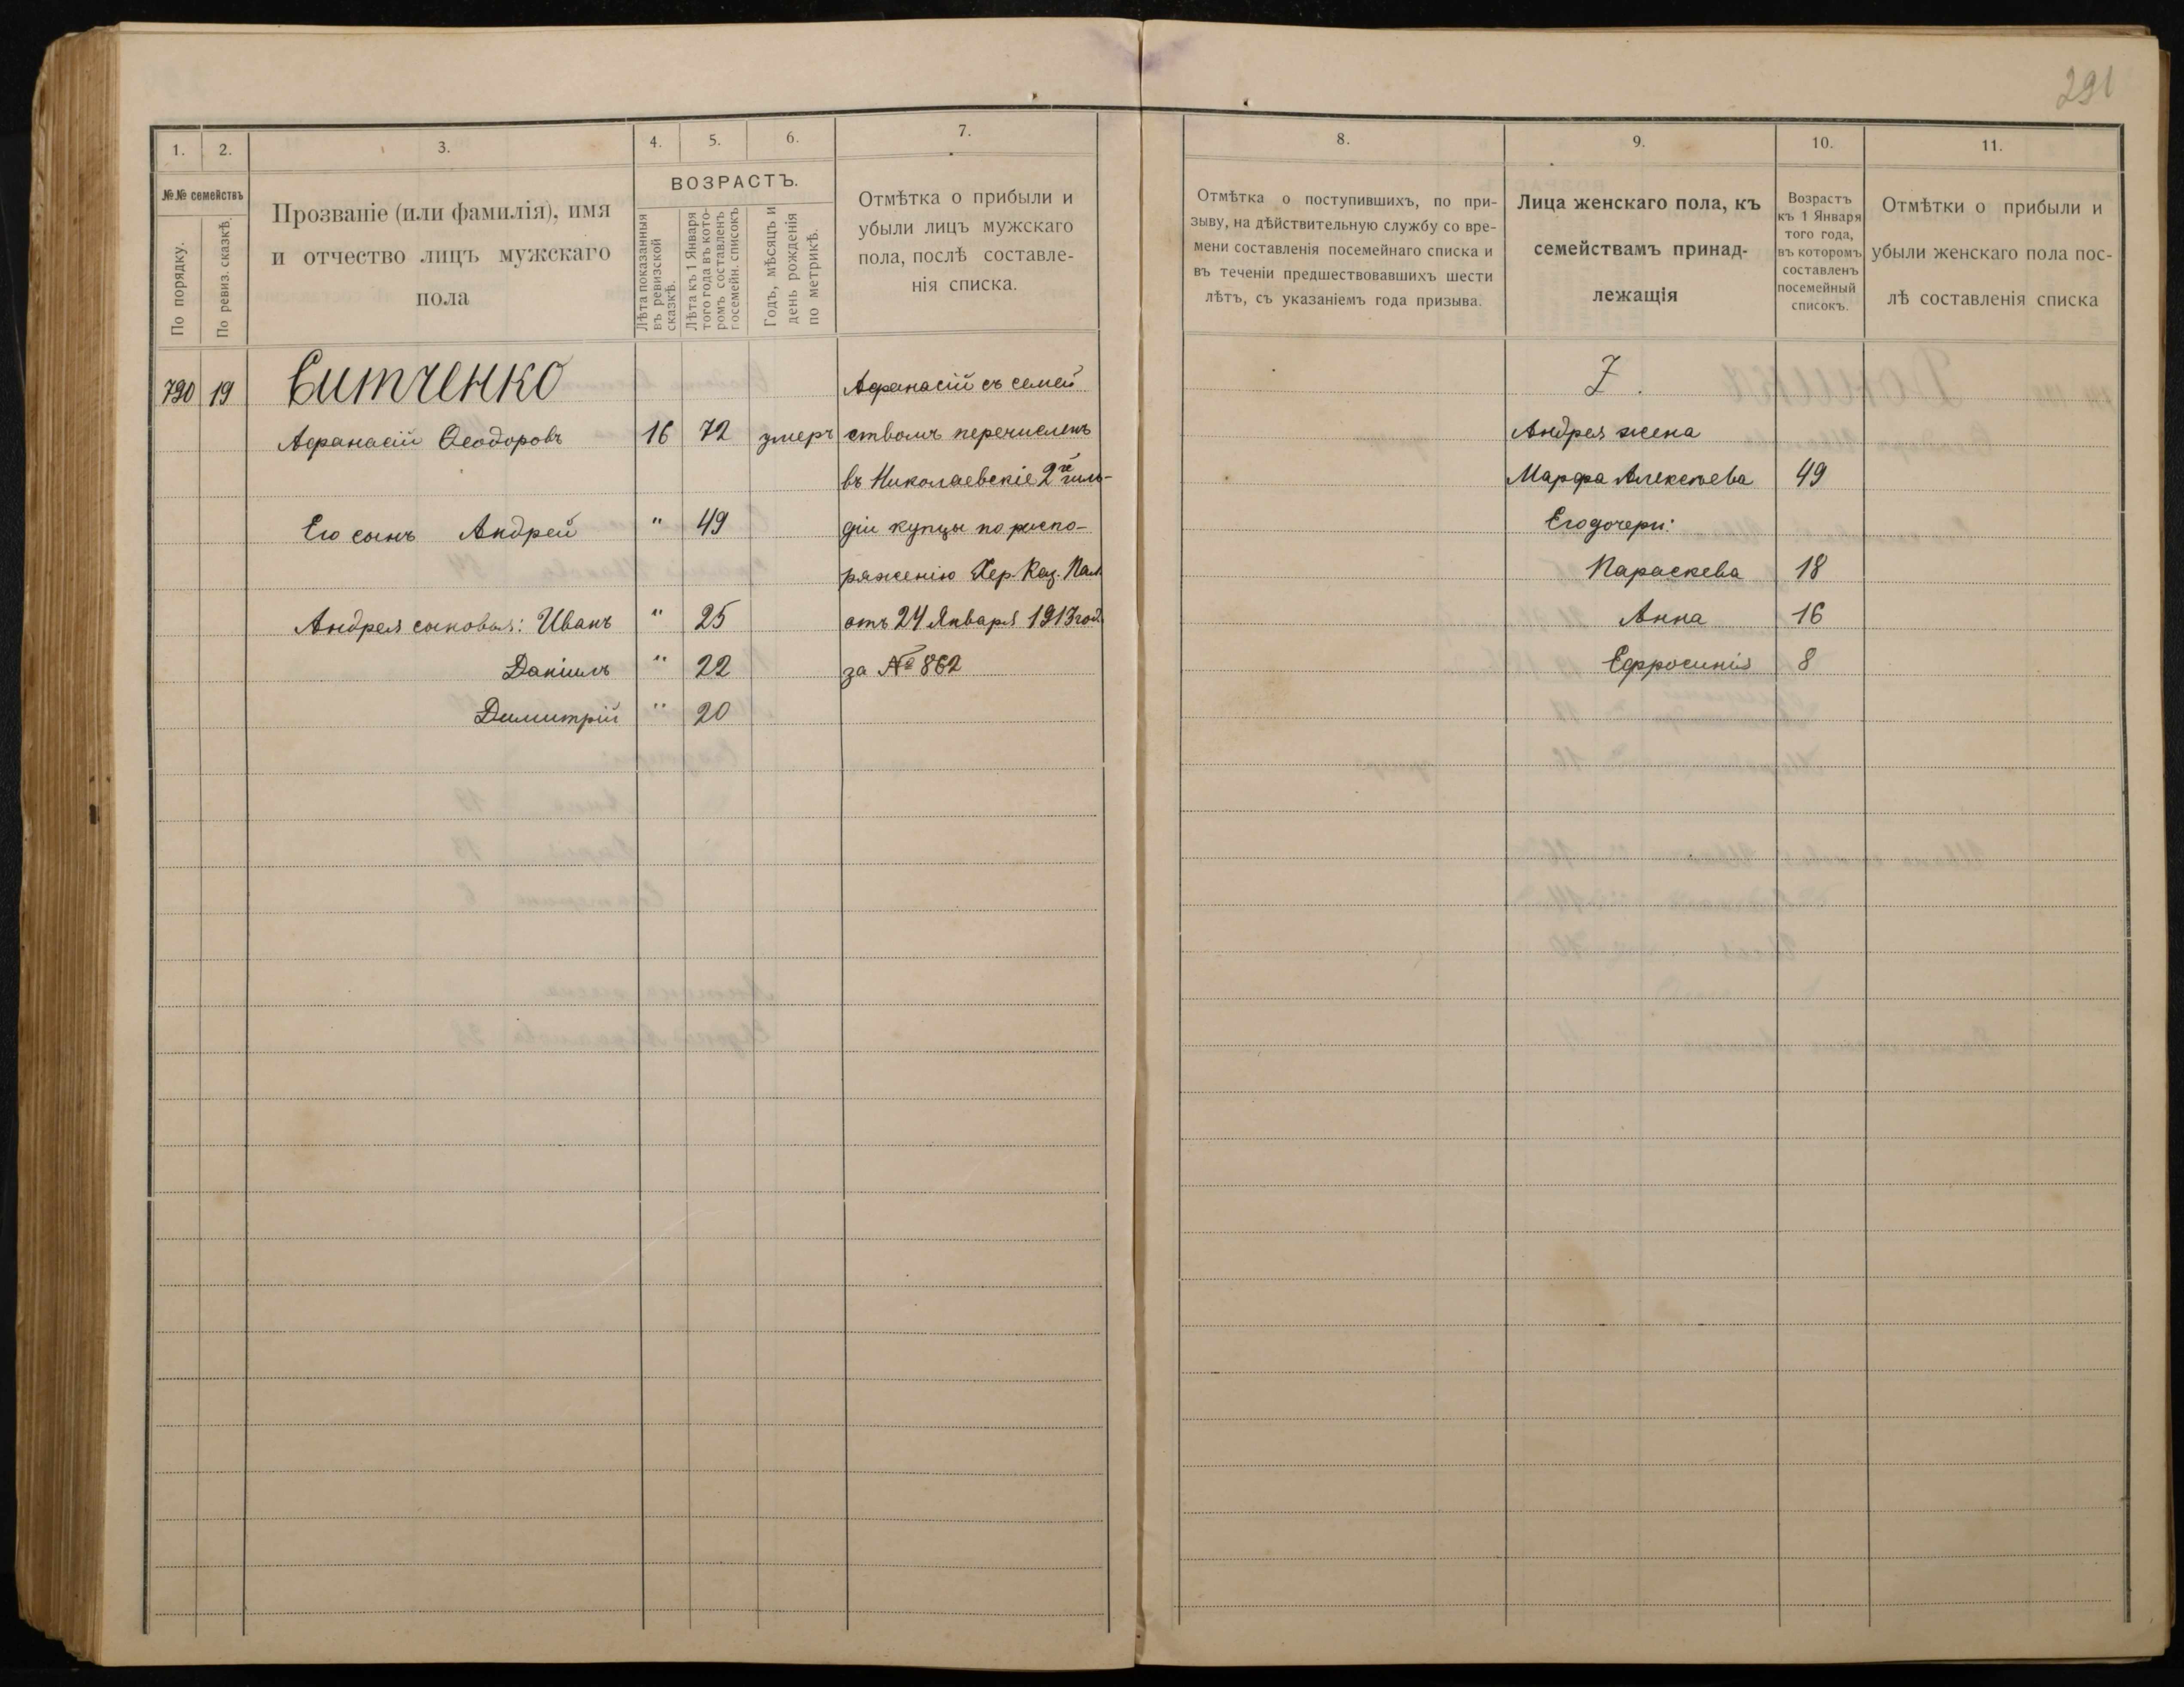 291
1. 2. 3. 4. 5. 6. 7.
№№ семействъ
По порядку.
По ревиз. сказкѣ.
Прозваніе (или фамилія), имя
и отчество лицъ мужскаго
пола
ВОЗРАСТЪ.
Лѣта показанныя
въ ревизской
сказкѣ.
Лѣта къ 1 Января
того года въ кото-
ромъ составленъ
посемейн. списокъ
Годъ, мѣсяцъ и
день рожденія
по метрикѣ.
Отмѣтка о прибыли и
убыли лицъ мужскаго
пола, послѣ составле-
нія списка.
790 19 Ситченко
Афанасій Ѳеодоровъ 16 72 умеръ
Его сынъ Андрей " 49
Андрея сыновья: Иванъ " 25
Даніилъ " 22
Димитрій " 20
Афанасій съ семей
ствомъ перечисленъ
въ Николаевскіе 2й гиль-
діи купцы по распо-
ряженію Хер. Каз. Пал.
отъ 24 Января 1913 год.
за № 862
8. 9. 10. 11.
Отмѣтка о поступившихъ, по при-
зыву, на дѣйствительную службу со вре-
мени составленія посемейнаго списка и
въ теченіи предшествовавшихъ шести
лѣтъ, съ указаніемъ года призыва.
Лица женскаго пола, къ
семействамъ принад-
лежащія
Возрастъ
къ 1 Января
того года,
въ которомъ
составленъ
посемейный
списокъ.
Отмѣтки о прибыли и
убыли женскаго пола пос-
лѣ составленія списка
Андрея жена
Марфа Алексѣева 49
Его дочери:
Параскева 18
Анна 16
Ефросинія 8